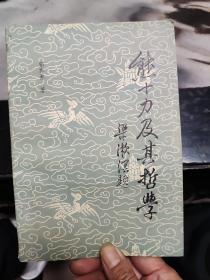 熊十力及其哲学
梁漱溟题